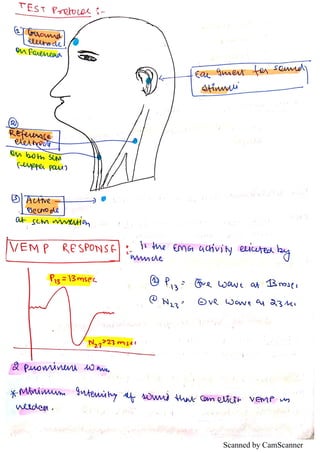 TEST Protocol :-
① Ground
electrode
on Forehead
Ear insert for sound
stimuli
②
Reference
electrode
on both SCM
(upper part)
③ Active
electrode
at SCM insertion
VEMP RESPONSE :- Is the EMG activity elicited by
muscle
P13 = 13 msec
① P13 = ⊕ve wave at 13 msec
② N23 = ⊖ve wave at 23
N23 = 23 msec
2 prominent
* Minimum Intensity of sound that can elicit VEMP is
needed.
Scanned by CamScanner